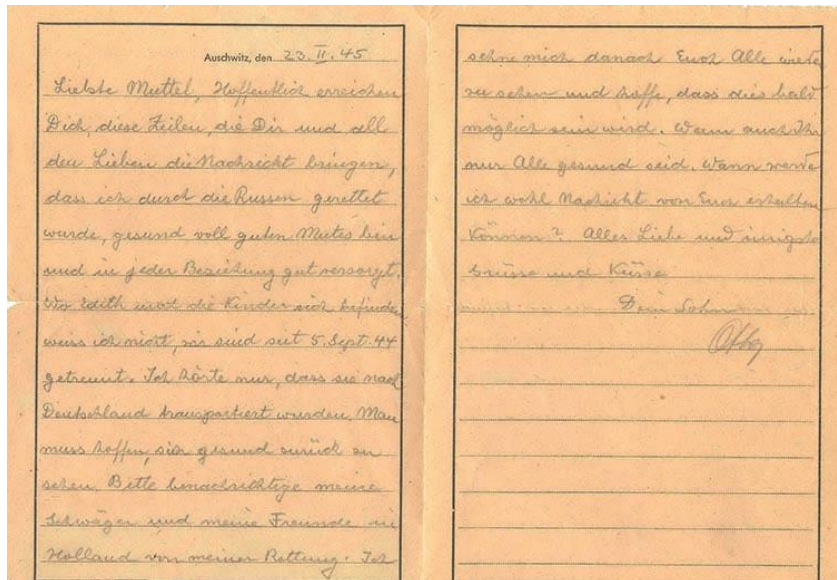 Auschwitz, den 23. II. 45
Liebste Muttel, Hoffentlich erreichen
Dich, diese Zeilen, die Dir und all
den Lieben die Nachricht bringen,
dass ich durch die Russen gerettet
wurde, gesund voll guten Mutes bin
und in jeder Beziehung gut versorgt.
Wo Edith und die Kinder sich befinden
weiss ich nicht, wir sind seit 5. Sept. 44
getrennt. Ich hörte nur, dass sie nach
Deutschland transportiert wurden. Man
muss hoffen, sie gesund zurück zu
sehen. Bitte benachrichtige meine
Schwäger und meine Freunde in
Holland von meiner Rettung. Ich
sehne mich danach Euch Alle wieder
zu sehen und hoffe, dass dies bald
möglich sein wird. Wenn auch Ihr
nur Alle gesund seid. Wann werde
ich wohl Nachricht von Euch erhalten
können? Alles Liebe und innigste
Grüsse und Küsse
Dein Sohn